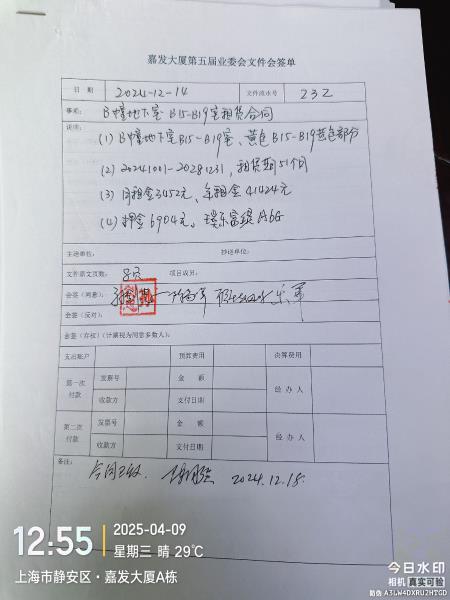 嘉发大厦第五届业委会文件会签单
日 期 2024-12-14 文件流水号 232
事项: B幢地下室B15-B19室租赁合同
说明: (1) B幢地下室B15-B19室、黄色B15-B19黄色部分
(2) 20241001-20281231, 租赁期51个月
(3) 月租金3452元, 年租金41424元
(4) 押金6904元,
主送单位: 抄送单位:
文件原文页数: 8页 项目成员:
会签(同意):
会签(反对):
会签(弃权)(计票视为同意多数人):
支出账户 预算费用 决算费用
第一次付款 发票号 金 额 经 办 人
收款方 支付日期
第二次付款 发票号 金 额 经 办 人
收款方 支付日期
备注:
合同三份. 2024.12.18.
12:55 2025-04-09
星期三 晴 29℃
上海市静安区·嘉发大厦A栋
今日水印
相机 真实可验
防伪 A3LW4DXRU2HTGD